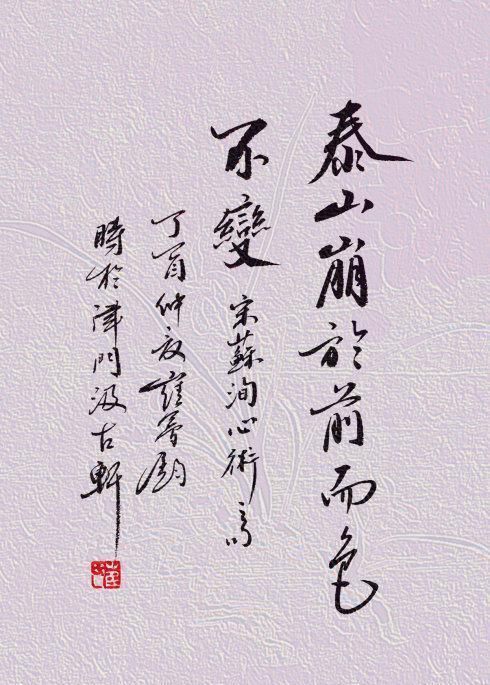 泰山崩於前而色
不變 宋蘇洵心術句
丁酉仲夏崔
時於津門汲古軒